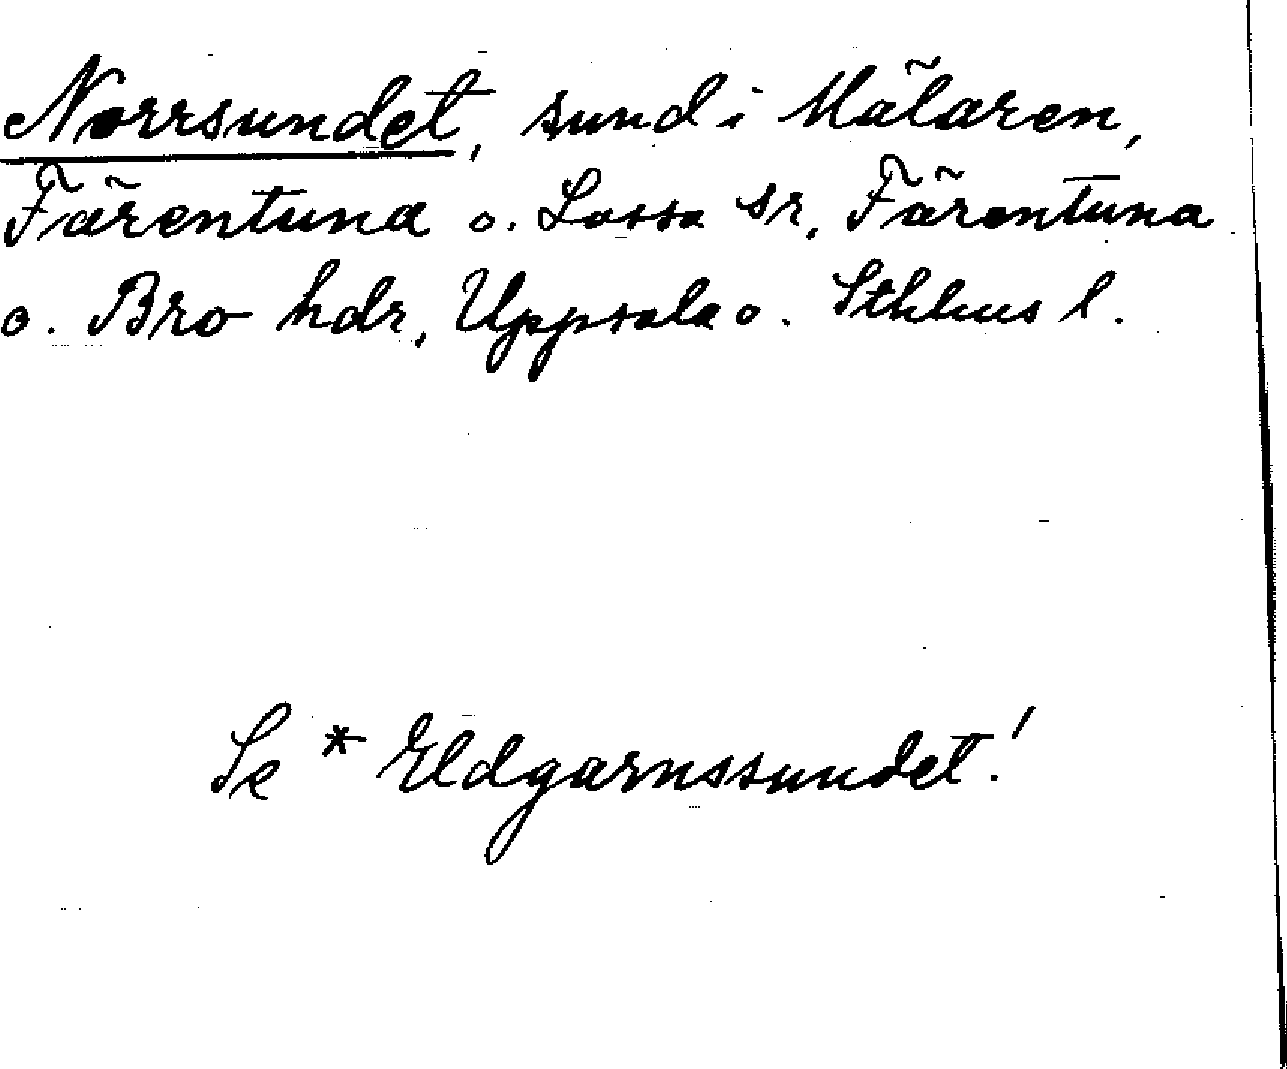 Norrsundet, sund i Mälaren,
Färentuna o. Lossa sr, Färentuna
o. Bro hdr, Uppsala o. Sthlms l.
Se * Eldgarnssundet!